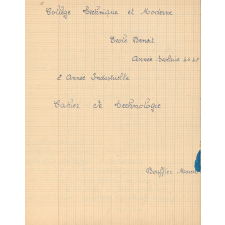 Collège Technique et Moderne
École Benoit
Année Scolaire
2e Année Industrielle
Cahier de Technologie
Bouffier